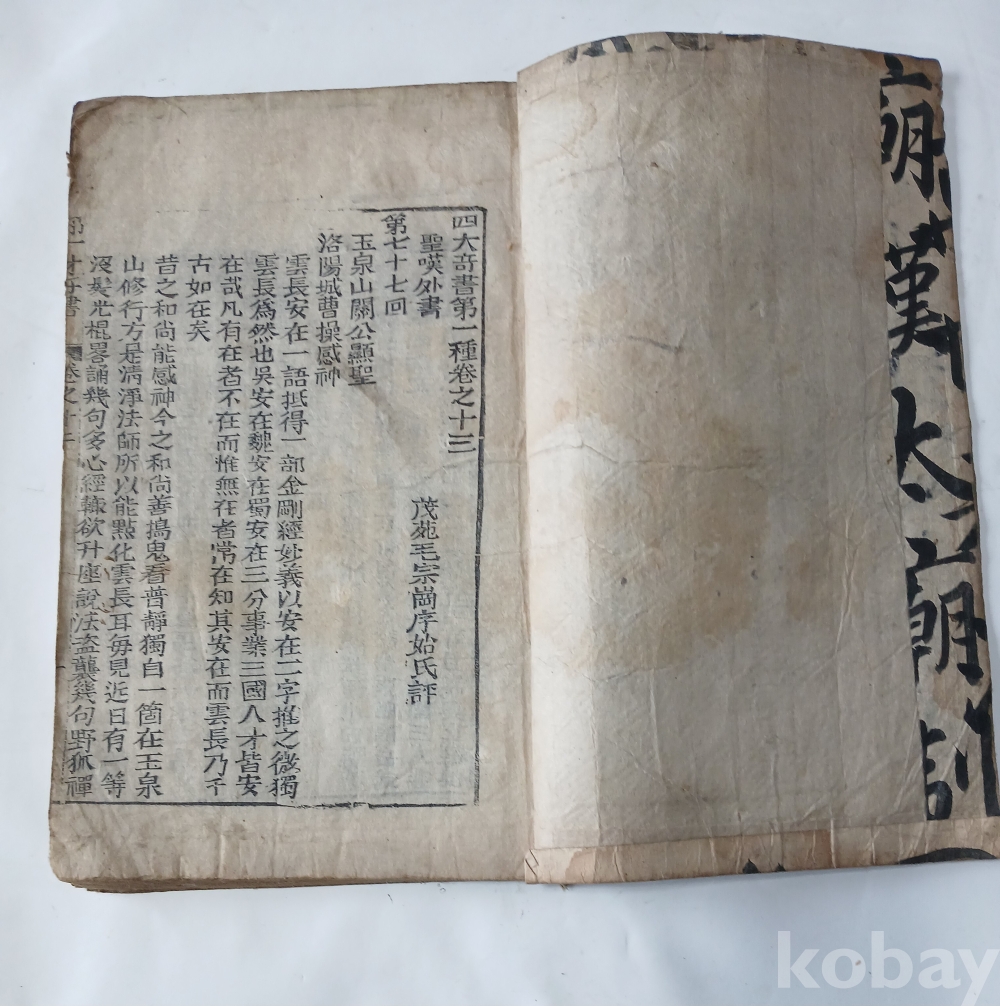 四大奇書第一種卷之十三
聖嘆外書
茂苑毛宗崗序始氏評
第七十七回
玉泉山關公顯聖
洛陽城曹操感神
雲長安在一語抵得一部金剛經妙義以安在二字推之微獨
雲長爲然也吳安在魏安在蜀安在三分事業三國人才皆安
在哉凡有在者不在而惟無在者常在知其安在而雲長乃千
古如在矣
昔之和尙能感神今之和尙善搗鬼看普靜獨自一箇在玉泉
山修行方是淸淨法師所以能點化雲長耳每見近日有一等
沒髮光棍畧誦幾句多心經輒欲升座說法盜襲幾句野狐禪
第一才子書
卷之十三
廟漢太廟
kobay